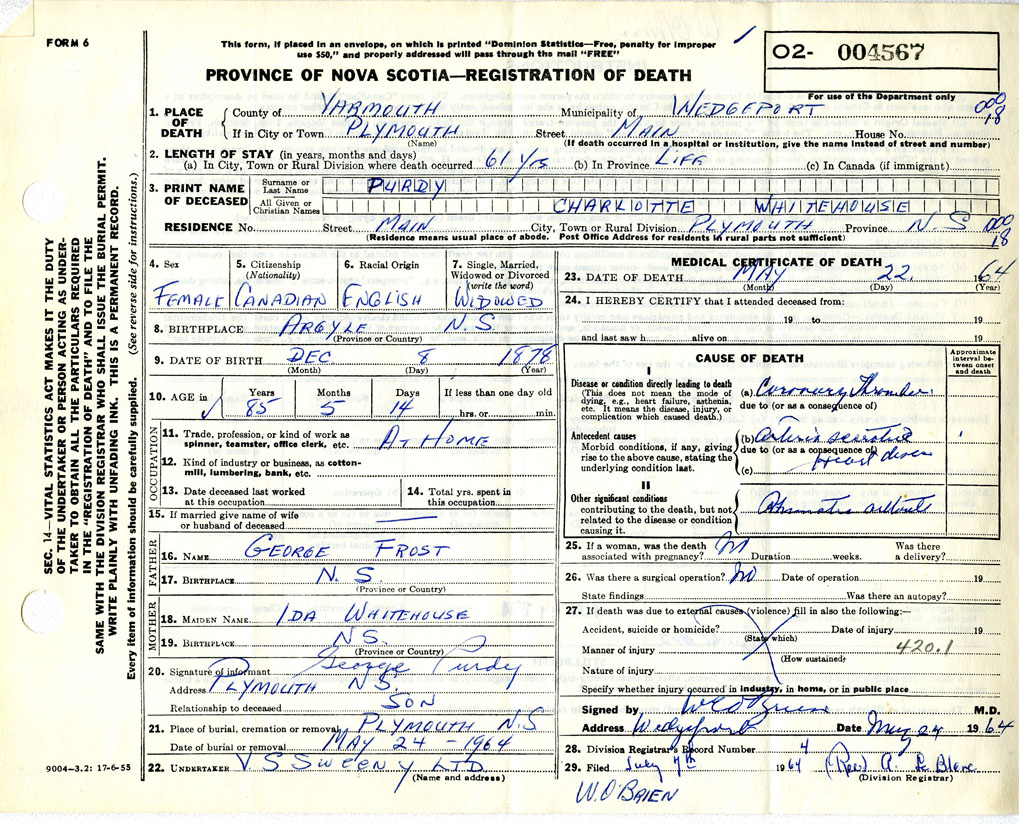 FORM 6
This form, if placed in an envelope, on which is printed "Dominion Statistics—Free, penalty for improper
use $50," and properly addressed will pass through the mail "FREE"
PROVINCE OF NOVA SCOTIA—REGISTRATION OF DEATH
O2- 004567
For use of the Department only
1. PLACE OF DEATH County of YARMOUTH Municipality of WEDGEPORT 000 18
If in City or Town PLYMOUTH Street MAIN House No.
(Name) (If death occurred in a hospital or institution, give the name instead of street and number)
2. LENGTH OF STAY (in years, months and days)
(a) In City, Town or Rural Division where death occurred 61 Yrs (b) In Province LIFE (c) In Canada (if immigrant)
3. PRINT NAME OF DECEASED Surname or Last Name PURDY
All Given or Christian Names CHARLOTTE WHITEHOUSE
RESIDENCE No. Street MAIN City, Town or Rural Division PLYMOUTH Province N.S 000 18
(Residence means usual place of abode. Post Office Address for residents in rural parts not sufficient)
4. Sex FEMALE
5. Citizenship (Nationality) CANADIAN
6. Racial Origin ENGLISH
7. Single, Married, Widowed or Divorced (write the word) WIDOWED
8. BIRTHPLACE ARGYLE N.S.
(Province or Country)
9. DATE OF BIRTH DEC 8 1878
(Month) (Day) (Year)
10. AGE in Years 85 Months 5 Days 14 If less than one day old hrs. or min.
OCCUPATION
11. Trade, profession, or kind of work as spinner, teamster, office clerk, etc. AT HOME
12. Kind of industry or business, as cotton-mill, lumbering, bank, etc.
13. Date deceased last worked at this occupation
14. Total yrs. spent in this occupation
15. If married give name of wife or husband of deceased —
FATHER
16. NAME GEORGE FROST
17. BIRTHPLACE N.S.
(Province or Country)
MOTHER
18. MAIDEN NAME IDA WHITEHOUSE
19. BIRTHPLACE NS.
(Province or Country)
20. Signature of informant George Purdy
Address PLYMOUTH NS.
Relationship to deceased SON
21. Place of burial, cremation or removal PLYMOUTH N.S
Date of burial or removal MAY 24 - 1964
22. UNDERTAKER V.S SWEENY LTD.
(Name and address)
MEDICAL CERTIFICATE OF DEATH
23. DATE OF DEATH MAY 22 1964
(Month) (Day) (Year)
24. I HEREBY CERTIFY that I attended deceased from:
19 to 19
and last saw h alive on 19
CAUSE OF DEATH
Approximate interval between onset and death
I
Disease or condition directly leading to death
(This does not mean the mode of dying, e.g., heart failure, asthenia, etc. It means the disease, injury, or complication which caused death.)
(a) Coronary Thrombosis
due to (or as a consequence of)
Antecedent causes
Morbid conditions, if any, giving rise to the above cause, stating the underlying condition last.
(b) Arteriosclerotic
due to (or as a consequence of)
Heart disease
(c)
II
Other significant conditions
contributing to the death, but not related to the disease or condition causing it.
arthritis
25. If a woman, was the death associated with pregnancy? No Duration weeks. Was there a delivery?
26. Was there a surgical operation? No Date of operation 19
State findings Was there an autopsy?
27. If death was due to external causes (violence) fill in also the following:—
Accident, suicide or homicide? Date of injury 19
(State which)
Manner of injury 420.1
(How sustained)
Nature of injury
Specify whether injury occurred in industry, in home, or in public place
Signed by W C O'Brien M.D.
Address Wedgeport Date May 24 1964
28. Division Registrar's Record Number 4
29. Filed July 7th 1964 (Rev) A. LeBlanc
(Division Registrar)
W. O'BRIEN
SEC. 14—VITAL STATISTICS ACT MAKES IT THE DUTY
OF THE UNDERTAKER OR PERSON ACTING AS UNDER-
TAKER TO OBTAIN ALL THE PARTICULARS REQUIRED
IN THE "REGISTRATION OF DEATH" AND TO FILE THE
SAME WITH THE DIVISION REGISTRAR WHO SHALL ISSUE THE BURIAL PERMIT.
WRITE PLAINLY WITH UNFADING INK. THIS IS A PERMANENT RECORD.
Every item of information should be carefully supplied. (See reverse side for instructions.)
9004-3.2: 17-6-55